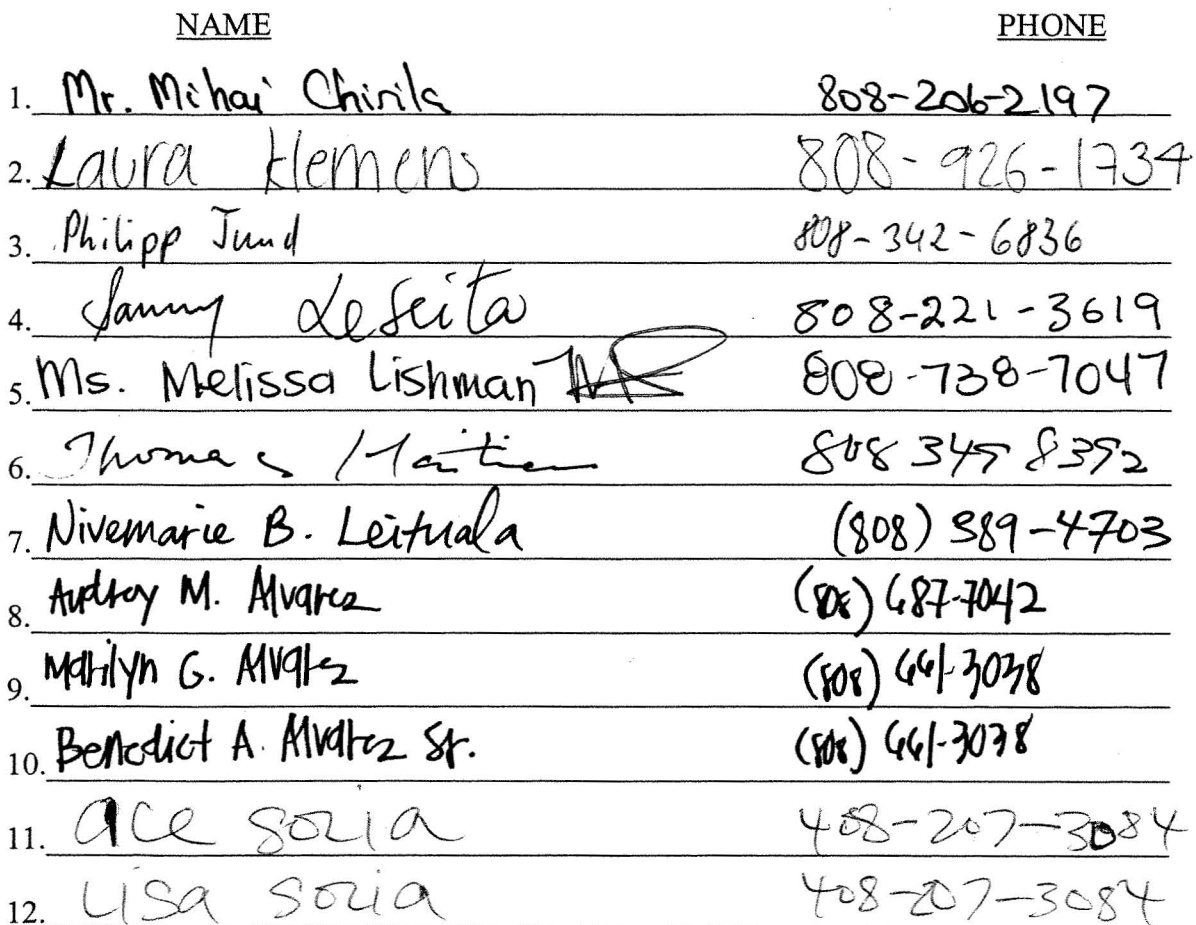 NAME PHONE
1. Mr. Mihai Chirila 808-206-2197
2. Laura Klemens 808-926-1734
3. Philipp Jund 808-342-6836
4. Sammy 808-221-3619
5. Ms. Melissa Lishman 808-738-7047
6. Thomas 808 345 8392
7. Nivemarie B. Leituala (808) 389-4703
8. Audrey M. Alvarez (808) 687-7042
9. Marilyn G. Alvarez (808) 661-3038
10. Benedict A. Alvarez Sr. (808) 661-3038
11. ace soria 408-207-3084
12. Lisa soria 408-207-3084